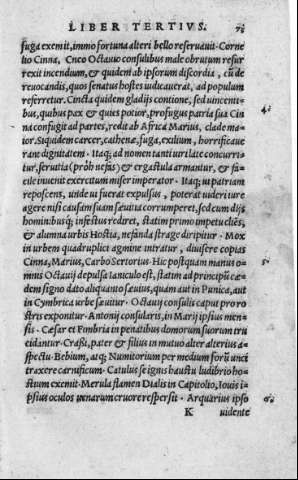 LIBER TERTIVS.
fuga exemit, immo fortuna alteri bello reseruauit. Corne
lio Cinna, Cneo Octauio consulibus male obrutum resur
rexit incendium, & quidem ab ipsorum discordia, cũ de
reuocandis, quos senatus hostes iudicauerat, ad populum
referretur. Cincta quidem gladijs contione, sed uincenti-
bus, quibus pax & quies potior, profugus patria sua Cin
na confugit ad partes, redit ab Africa Marius, clade ma-
ior. Siquidem carcer, cathenæ, fuga, exilium, horrificaue
rant dignitatem. Itaq; ad nomen tanti uiri late concurri-
tur, seruitia (proh nefas) & ergastula armantur, & fa-
cile inuenit exercitum miser imperator. Itaq; ui patriam
reposcens, unde ui fuerat expulsus, poterat uideri iure
agere nisi causam suam sæuitia corrumperet, sed cum dijs
hominibusq; infestus rediret, statim primo impetu cliẽs,
& alumna urbis Hostia, nefanda strage diripitur. Mox
in urbem quadruplici agmine intratur, diuisere copias
Cinna, Marius, Carbo Sertorius. Hic postquam manus o-
mnis Octauij depulsa Ianiculo est, statim ad principũ cæ-
dem signo dato aliquanto sæuius, quam aut in Punica, aut
in Cymbrica urbe sæuitur. Octauij consulis caput pro ro
stris exponitur. Antonij consularis, in Marij ipsius men-
sis. Cæsar et Fimbria in penatibus domorum suorum tru
cidantur. Crassi, pater & filius in mutuo alter alterius a-
spectu. Bebium, atq; Numitorium per medium forũ unci
traxere carnificum. Catulus se ignis haustu ludibrio ho-
stium exemit. Merula flamen Dialis in Capitolio, Iouis i-
psius oculos uenarum cruore respersit. Arquarius ipso
K uidente